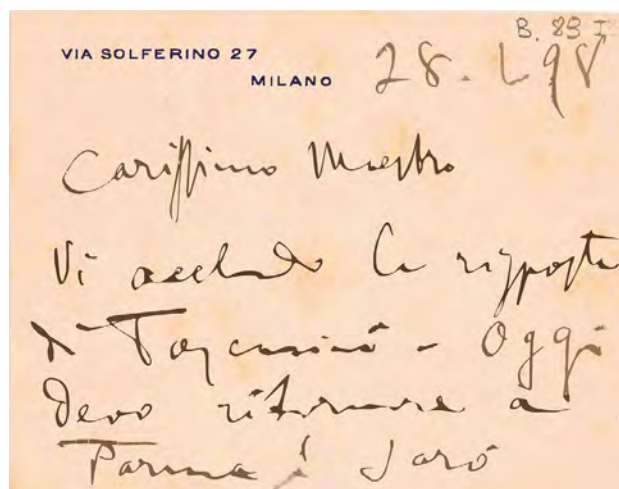 B. 83 I
VIA SOLFERINO 27
MILANO
28. 98
Carissimo Maestro
Vi accludo la risposta
di Toscanini - Oggi
devo ritornare a
Parma! Sarò